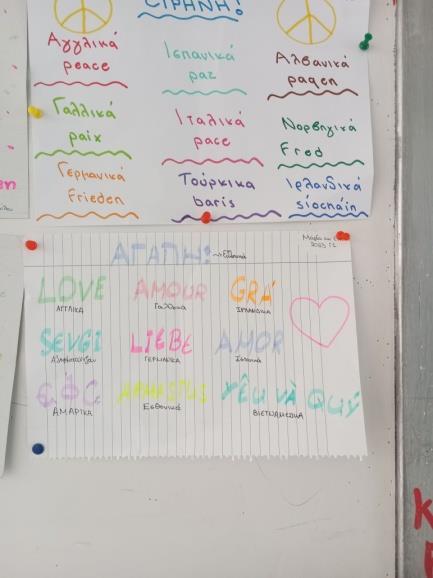 ΕΙΡΗΝΗ!
Αγγλικά
peace
Ισπανικά
paz
Αλβανικά
paqen
Γαλλικά
paix
Ιταλικά
pace
Νορβηγικά
Fred
Γερμανικά
Frieden
Τούρκικα
baris
Ιρλανδικά
síocháin
ΑΓΑΠΗ!
Ελληνικά
LOVE
ΑΓΓΛΙΚΑ
AMOUR
Γαλλικα
GRÁ
ΙΡΛΑΝΔΙΚΑ
SEVGI
LIEBE
ΓΕΡΜΑΝΙΚΑ
AMOR
Ισπανικα
ΑΜΑΡΙΚΑ
ARMASTUS
Εσθονικά
YÊU VÀ QUÝ
ΒΙΕΤΝΑΜΕΖΙΚΑ